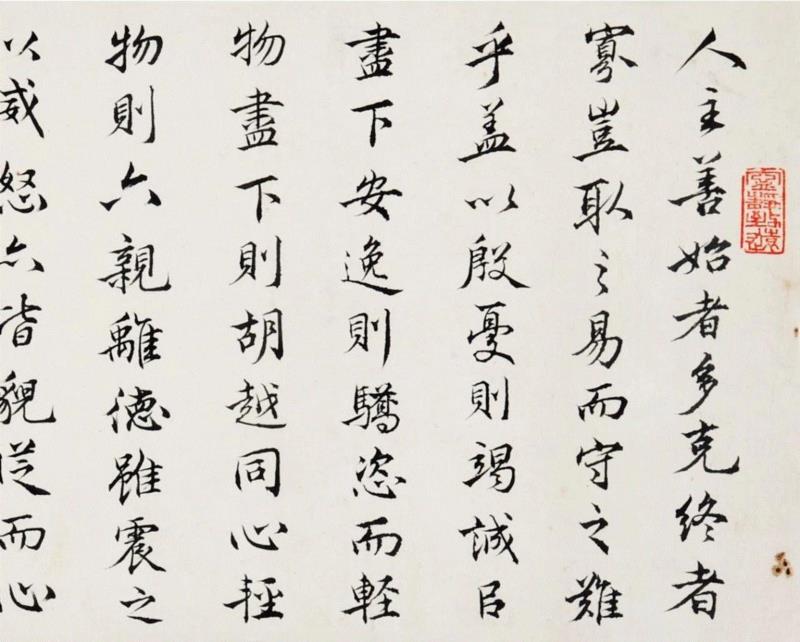 人主善始者多克終者
寡豈取之易而守之難
乎盖以殷憂則竭誠㠯
盡下安逸則驕恣而輕
物盡下則胡越同心輕
物則六親離德雖震之
以威怒亦皆貌從而心